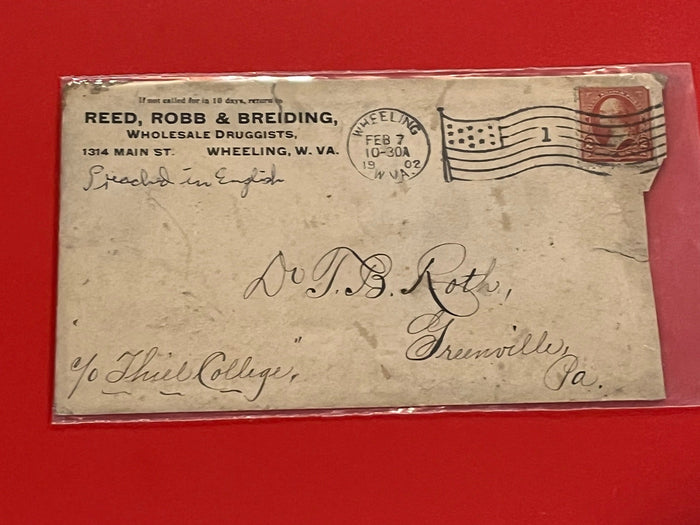 If not called for in 10 days, return to
REED, ROBB & BREIDING,
WHOLESALE DRUGGISTS,
1314 MAIN ST. WHEELING, W. VA.
Preached in English
WHEELING
FEB 7
10-30A
19 02
W VA.
1
Dr T. B. Roth,
Greenville,
Pa.
c/o Thiel College.